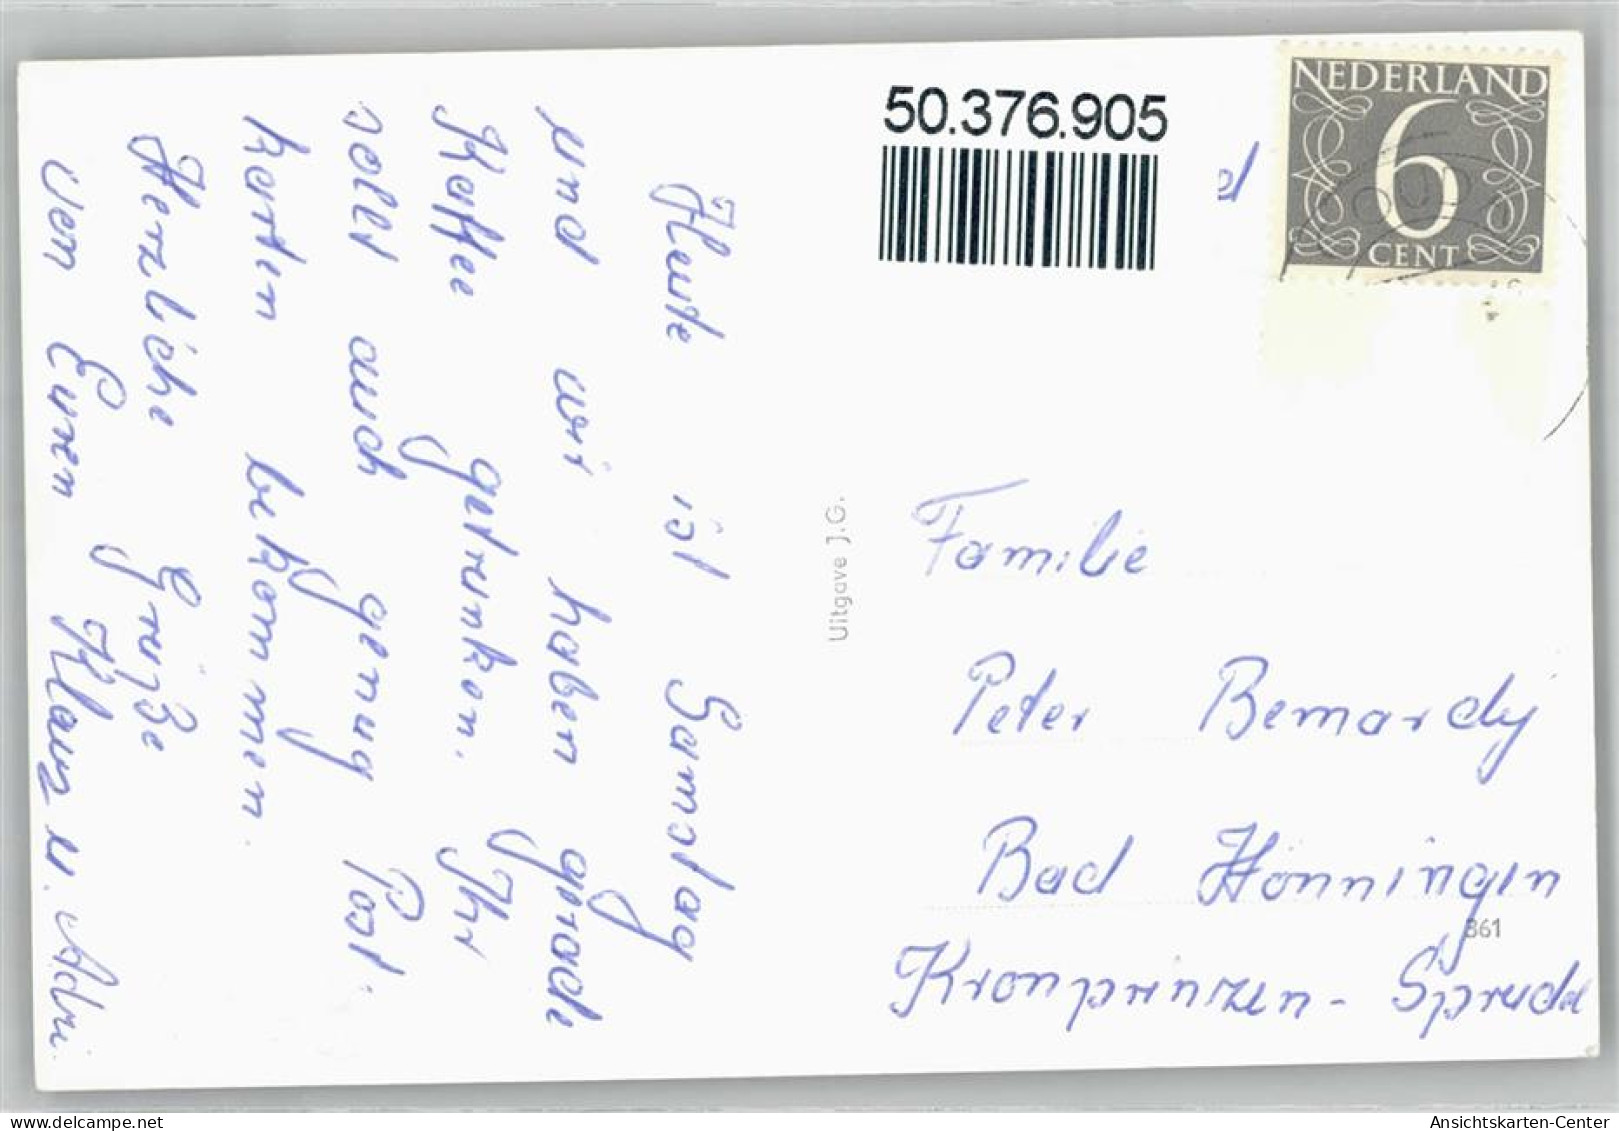 50.376.905
NEDERLAND
6
CENT
GOUDA
Heute ist Samstag
und wir haben grade
Kaffee getrunken. Ihr
sollt auch genug Post
karten bekommen.
Herzliche Grüße
von Euren Klaus u. Adri.
Uitgave J.G.
Familie
Peter Bernardy
Bad Hönningen
861
Kronprinzen-Sprudel
Ansichtskarten-Center